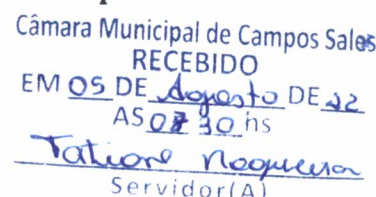 Câmara Municipal de Campos Sales
RECEBIDO
EM 05 DE Agosto DE 22
AS 07 30 hs
Tatiane Nogueira
Servidor(A)